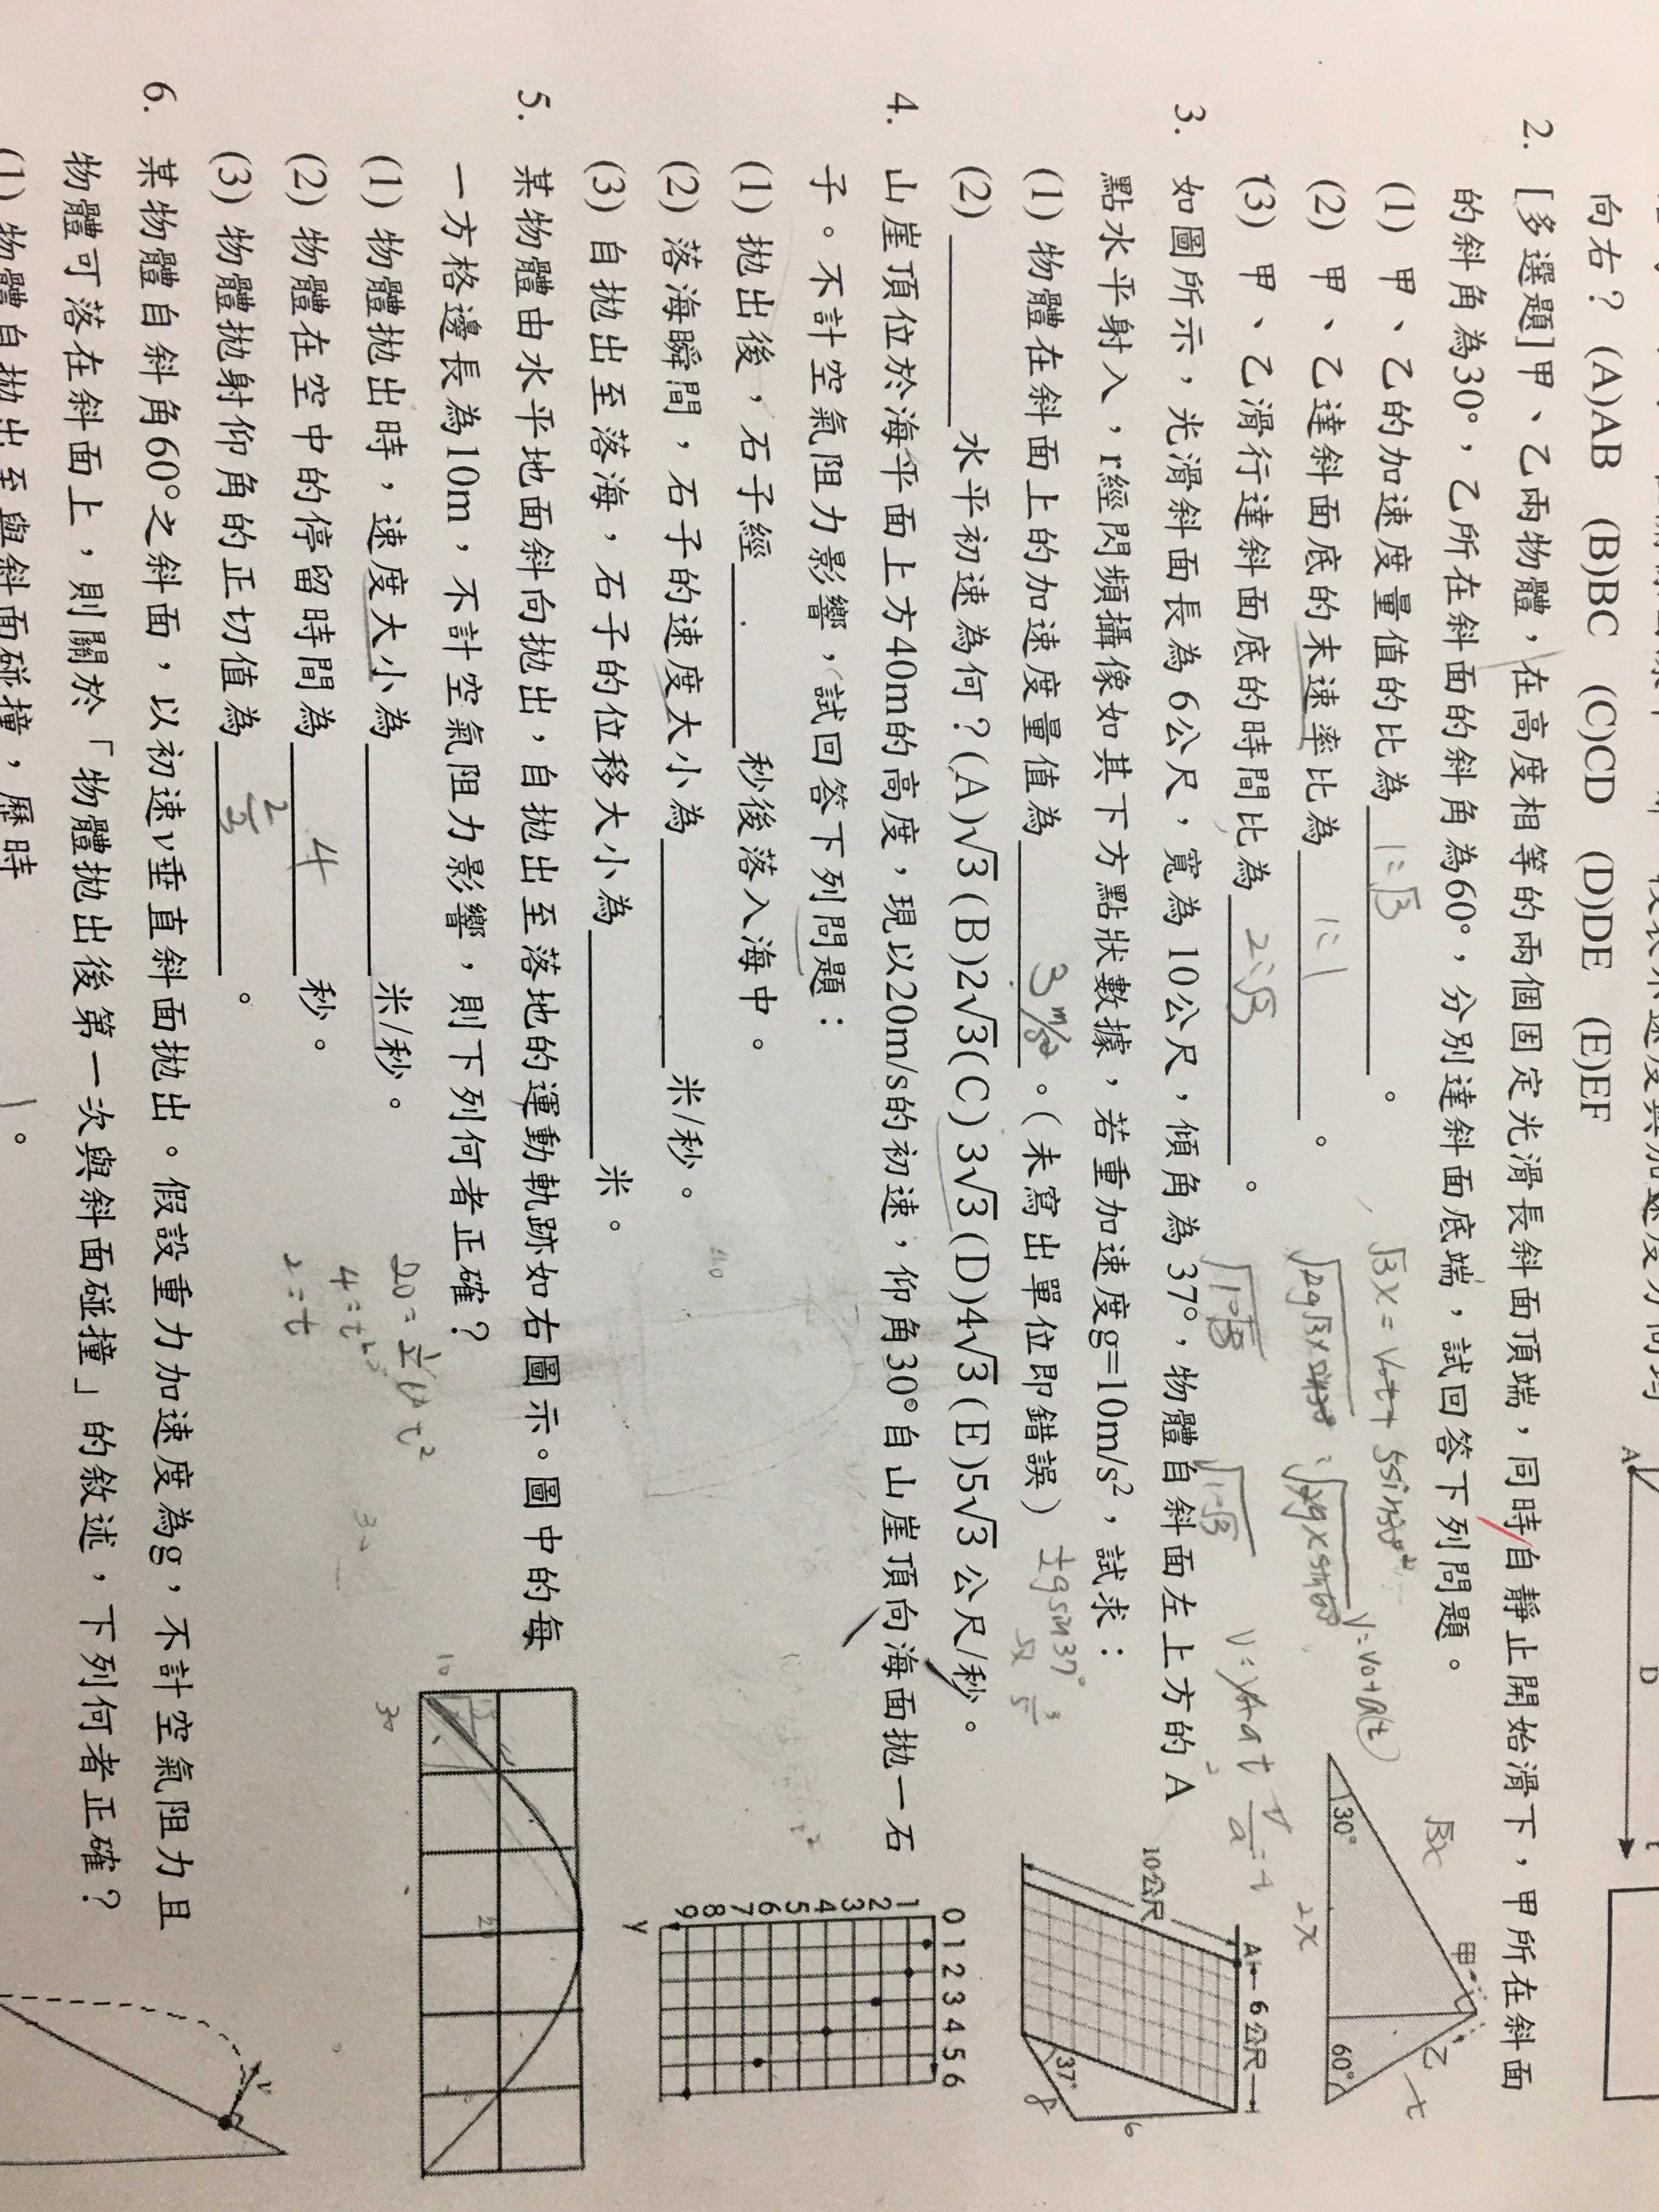 向右？ (A)AB (B)BC (C)CD (D)DE (E)EF
2. [多選題]甲、乙兩物體，在高度相等的兩個固定光滑長斜面頂端，同時自靜止開始滑下，甲所在斜面
的斜角為30°，乙所在斜面的斜角為60°，分別達斜面底端，試回答下列問題。
(1) 甲、乙的加速度量值的比為 1:√3 。
(2) 甲、乙達斜面底的末速率比為 1:1 。
(3) 甲、乙滑行達斜面底的時間比為 2:√3 。
30°
60°
甲
乙
√3x
2x
3. 如圖所示，光滑斜面長為6公尺，寬為10公尺，傾角為37°，物體自斜面左上方的A
點水平射入，r經閃頻攝像如其下方點狀數據，若重加速度g=10m/s²，試求：
(1) 物體在斜面上的加速度量值為 3 m/s² 。(未寫出單位即錯誤)
(2) ______水平初速為何？(A)√3(B)2√3(C)3√3(D)4√3(E)5√3公尺/秒。
A
6公尺
10公尺
37°
8
6
0 1 2 3 4 5 6
1 2 3 4 5 6 7 8 9
Y
4. 山崖頂位於海平面上方40m的高度，現以20m/s的初速，仰角30°自山崖頂向海面拋一石
子。不計空氣阻力影響，試回答下列問題：
(1) 拋出後，石子經______秒後落入海中。
(2) 落海瞬間，石子的速度大小為______米/秒。
(3) 自拋出至落海，石子的位移大小為______米。
5. 某物體由水平地面斜向拋出，自拋出至落地的運動軌跡如右圖示。圖中的每
一方格邊長為10m，不計空氣阻力影響，則下列何者正確？
(1) 物體拋出時，速度大小為______米/秒。
(2) 物體在空中的停留時間為 4 秒。
(3) 物體拋射仰角的正切值為______。
4=t²
2=t
10
30
6. 某物體自斜角60°之斜面，以初速v垂直斜面拋出。假設重力加速度為g，不計空氣阻力且
物體可落在斜面上，則關於「物體拋出後第一次與斜面碰撞」的敘述，下列何者正確？
(1) 物體自拋出至與斜面碰撞，歷時
v